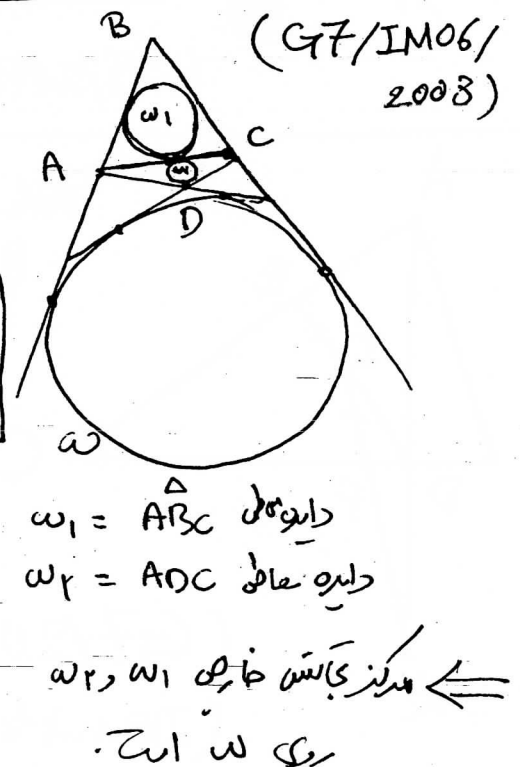 (G7/IMO6/
2008)
B
ω۱
C
A
ω
D
ω
ω۱ = ABC دایره محاطی
ω۲ = ADC دایره محاطی
مرکز تجانس خارجی ω۱ و ω۲
روی ω است.